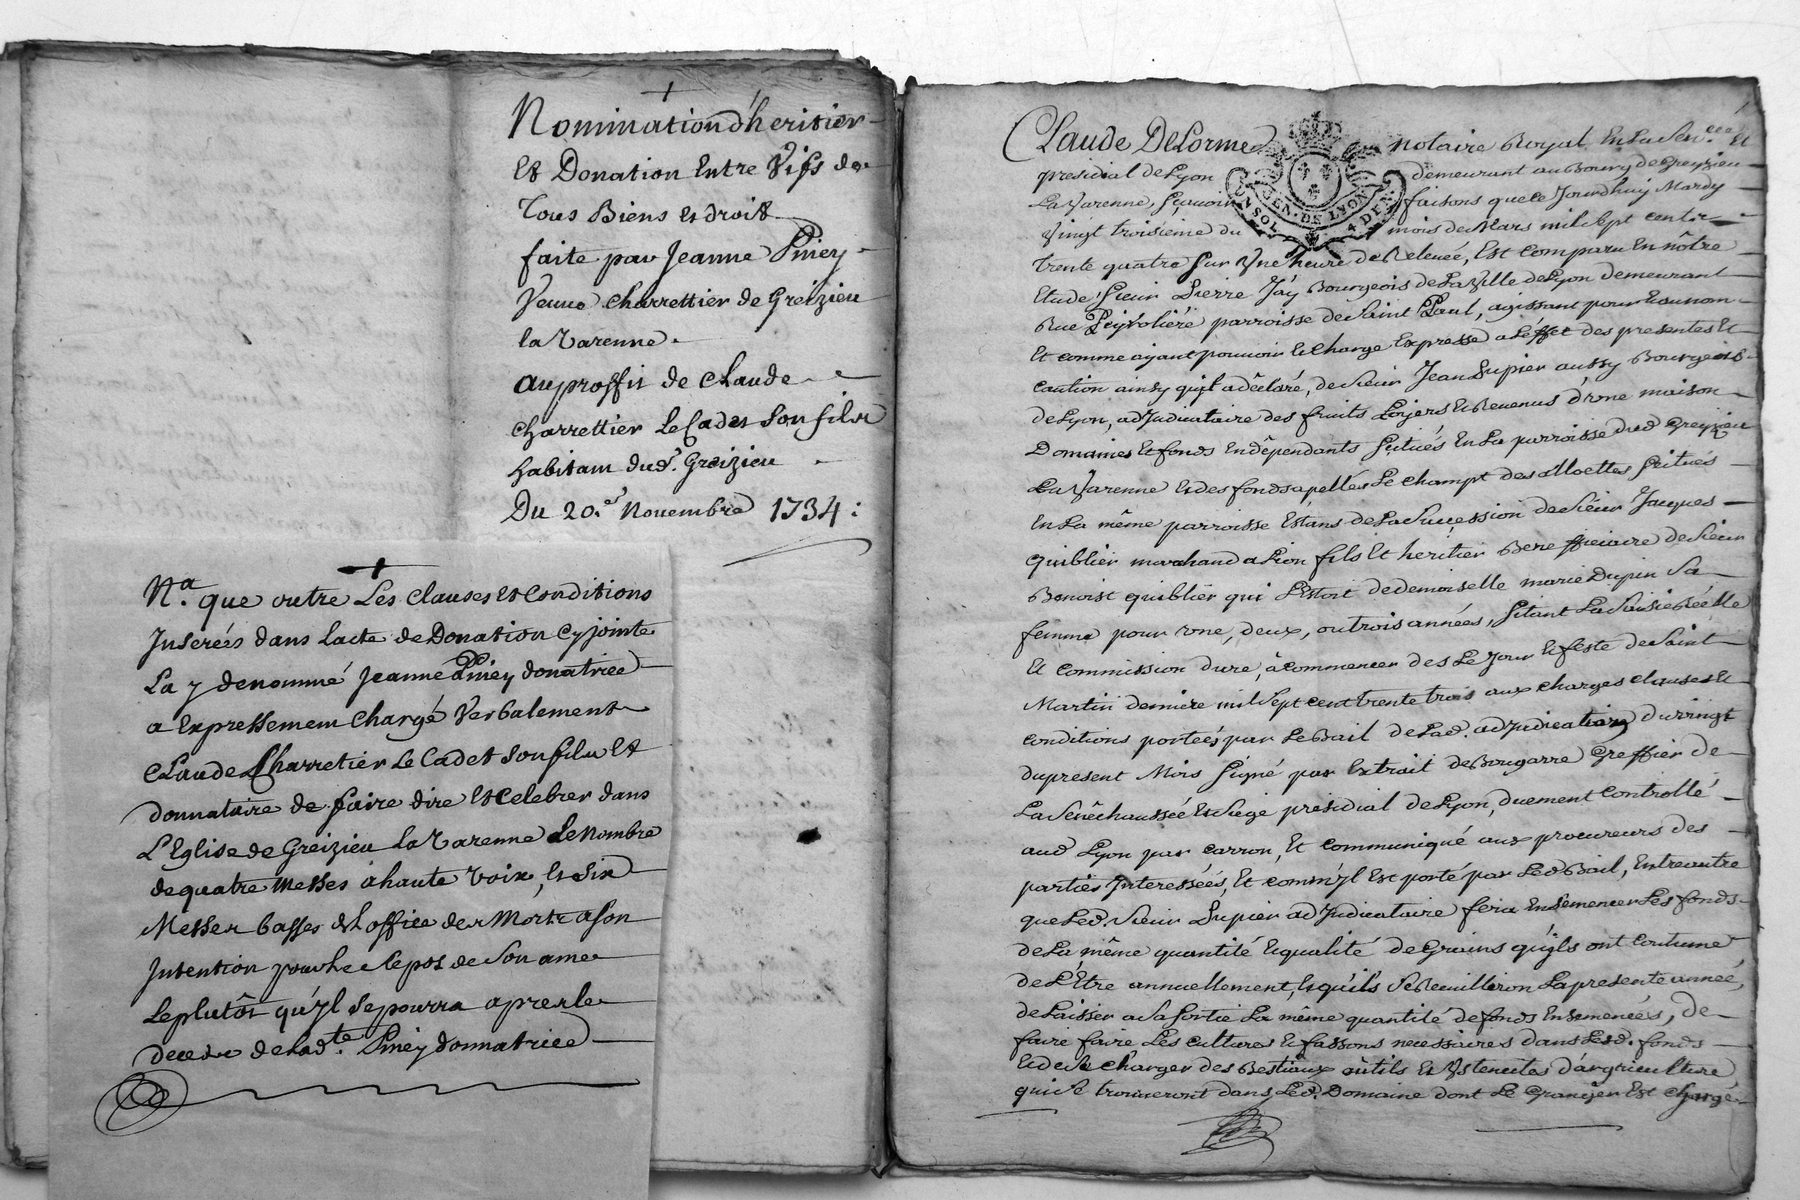 Nomination d'heritier
Et Donation Entre Vifs de
Tous Biens et droit
faite par Jeanne Piney
Veuve charrettier de Greizieu
la Varenne.
au proffit de claude
charrettier Le Cadet Son fils
habitant dud.t Greizieu
Du 20.e Novembre 1734 :
N.a que outre Les Clauses et Conditions
Inserées dans Lacte de Donation Cy jointe
La y denommé Jeanne Piney donatrice
a Expressement Chargé Verbalement
Claude Charretier Le Cadet son fils et
donnataire de faire dire et Celebrer dans
L'Eglise de Greizieu la Varenne Le nombre
de quatre Messes a haute Voix, et Six
Messes basses et L'office des Morts a Son
Intention pour Le Repos de Son ame
Le plutôt qu'yl Se pourra apres le
deceds de Lad.te Piney donnatrice
CLaude DeLorme notaire Royal En La Sen.cée Et
presidial de Lyon demeurant au Bourg de Greyzieu
La Varenne, Sçavoir faisons que Ce Jourdhuy Mardy
Vingt troisieme du mois de Mars mil Sept cent
GEN. DE LYON
trente quatre Sur Une heure de Relevée, Est comparu En nôtre
Etude Sieur Pierre Jay Bourgeois de La Ville de Lyon demeurant
Rue Peyrolière parroisse de Saint Paul, agissant pour Et au nom
Et comme ayant pouvoir Et Charge Expresse a L'éffet des presentes Et
caution ainsy qu'yl a dêclaré, de Sieur Jean Dupier aussy Bourgeois
de Lyon, adJudicataire des fruits Loyers Et Revenus d'vne maison
Domaines Et fonds En dêpendants Situés En La parroisse dud Greyzieu
La Varenne Et des fonds apellés Le Champt des alloettes Scitués
En La même parroisse Estans de La Succession de Sieur Jacques
quiblier marchand a Lion fils Et heritier Beneficiaire de Sieur
Benoist quiblier qui L'Estoit de demoiselle marie Dupin Sa
femme pour vne, deux, ou trois années, Sitant La Saisie Réelle
Et Commission dure, à commencer des Le Jour Et feste de Saint
Martin derniere mil Sept cent trente trois aux charges clauses Et
conditions portées par Le Bail de Lad. adJudication du vingt
du present Mois Signé par Extrait de Bougarre Greffier de
La Senêchaussée Et Siege presidial de Lyon, duement Controllé
aud Lyon par carron, Et Communiqué aux procureurs des
parties Interessées, Et comm'yl Est porté par Led Bail, Entreautre
que Led. Sieur Dupier adJudicataire fera EnSemencer Les fonds
de La même quantité Et qualité de Grains qu'ils ont Coutume
de L'Etre annuellement, Et qu'ils Se Reuilliron La presente année,
de Laisser a Sa Sortie La même quantité de fonds Ensemencés, de
faire faire Les cultures Et fassons necessaires dans Lesd. fonds
Et de Se charger des Bestiaux outils Et Ustenciles d'agriculture
qui Se trouveront dans Led. Domaine dont Le Granger Est Chargé